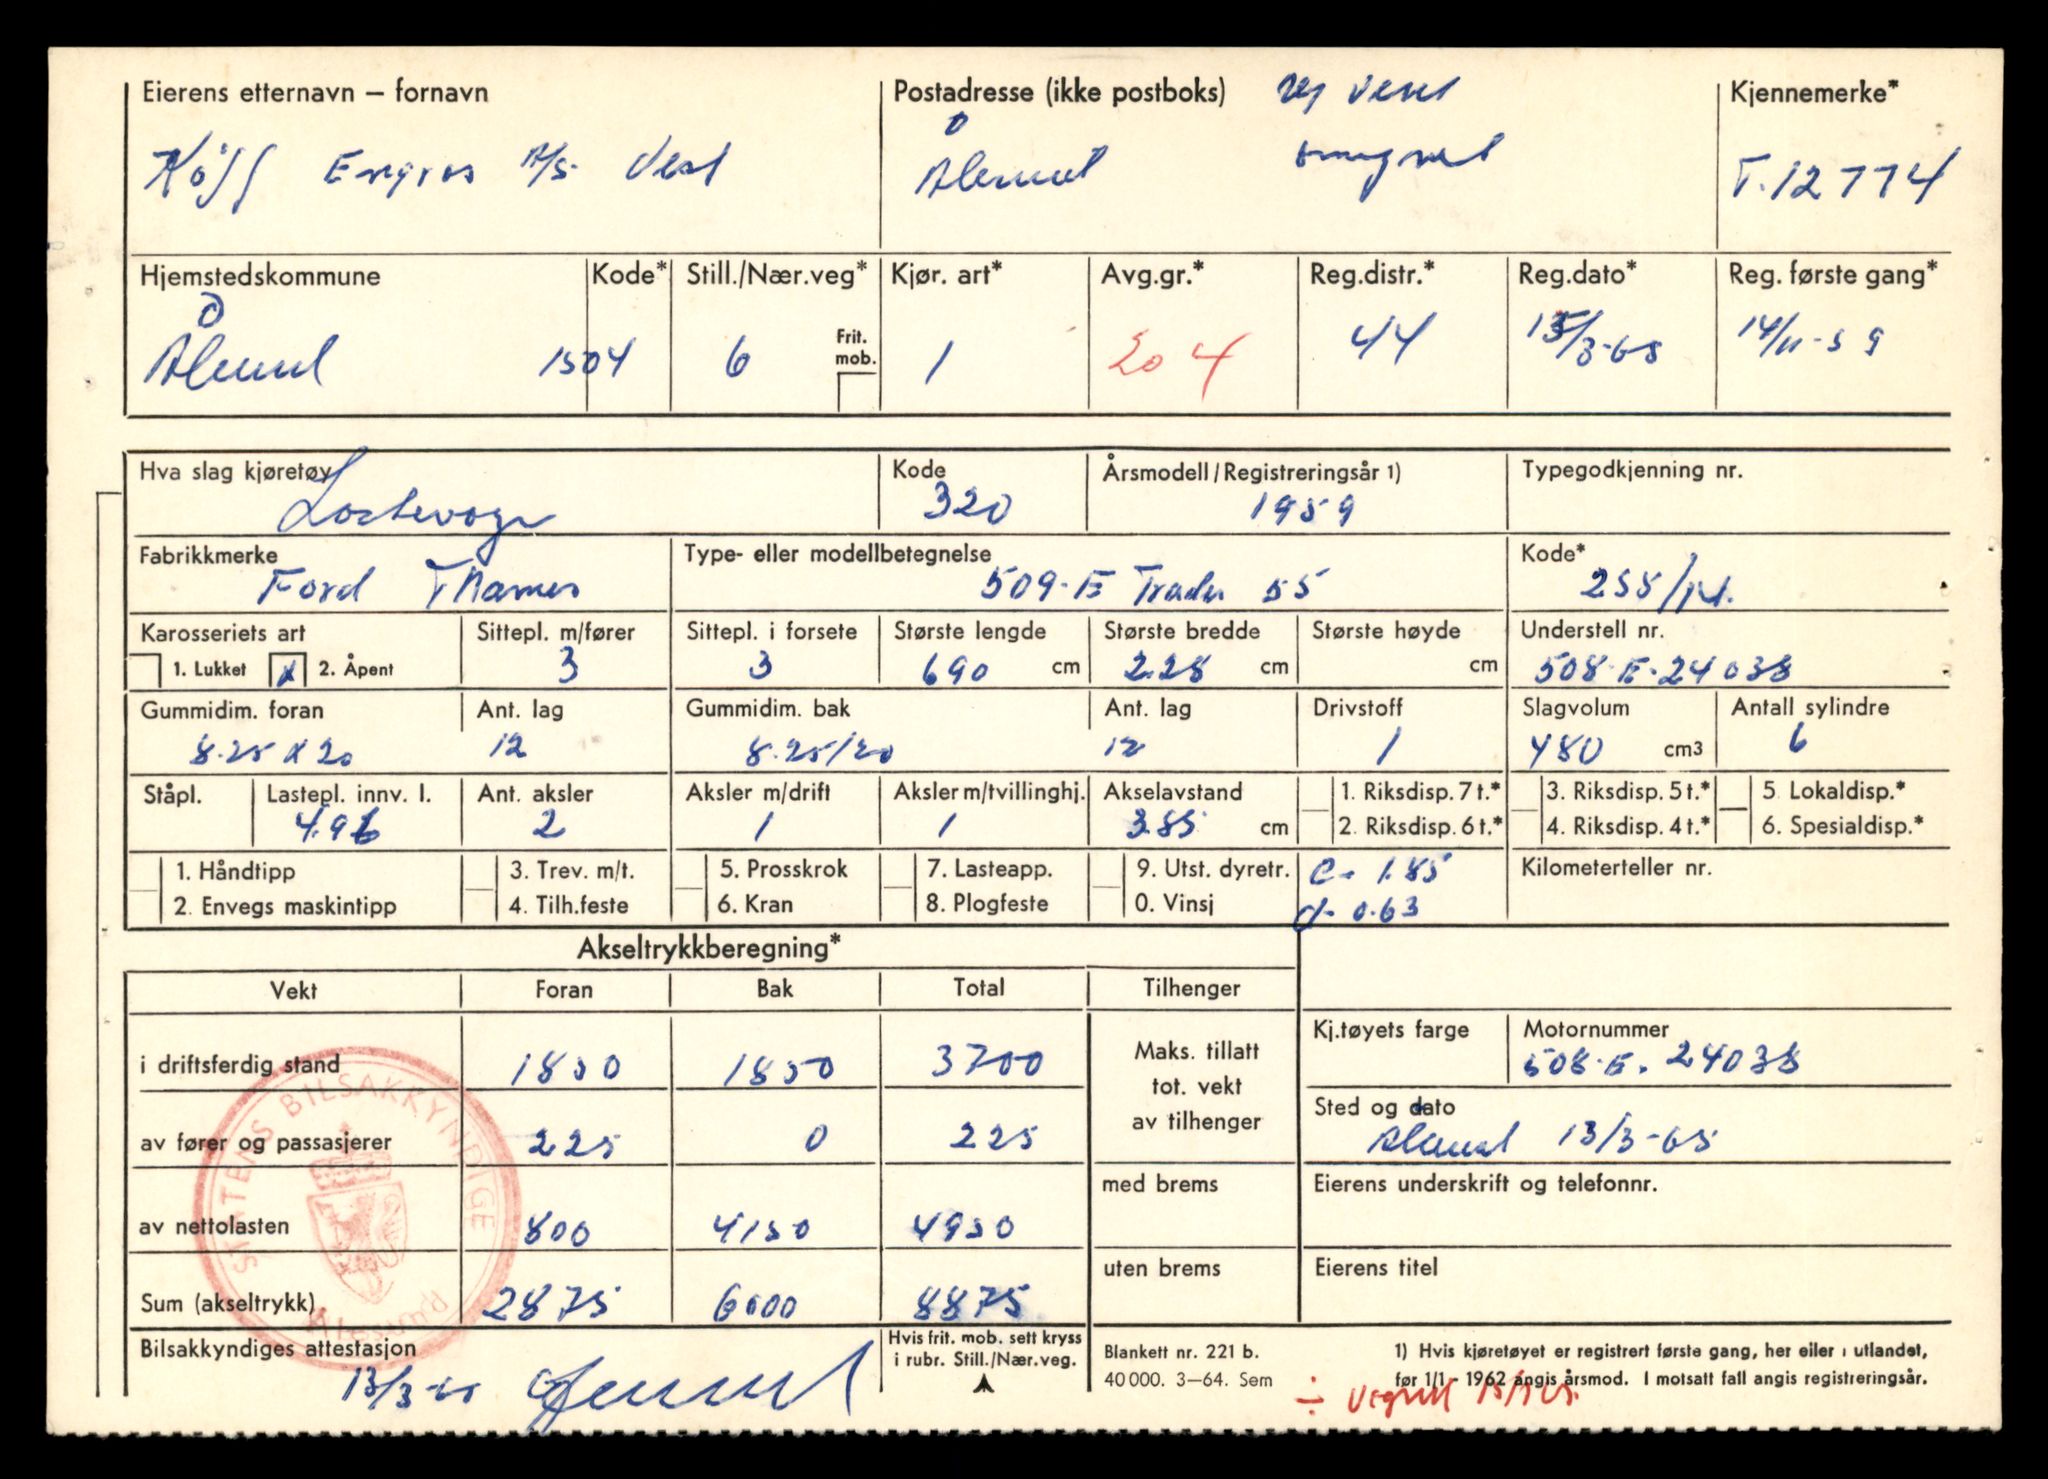 Eierens etternavn – fornavn
Postadresse (ikke postboks)
Kjennemerke*
Köff Engros A/S. Vest
Ålesund
T.12774
Hjemstedskommune
Kode*
Still./Nær.veg*
Kjør. art*
Avg.gr.*
Reg.distr.*
Reg.dato*
Reg. første gang*
Ålesund
1504
6
Frit. mob.
1
20 4
44
15/3-65
14/11-59
Hva slag kjøretøy
Lastevogn
Kode
320
Årsmodell/Registreringsår 1)
1959
Typegodkjenning nr.
Fabrikkmerke
Ford Thames
Type- eller modellbetegnelse
509-E Trader 55
Kode*
Karosseriets art
1. Lukket x 2. Åpent
Sittepl. m/fører
3
Sittepl. i forsete
3
Største lengde
690 cm
Største bredde
2.28 cm
Største høyde
cm
Understell nr.
508-E-24038
Gummidim. foran
8.25 x 20
Ant. lag
12
Gummidim. bak
8.25/20
Ant. lag
12
Drivstoff
1
Slagvolum
480 cm3
Antall sylindre
6
Ståpl.
Lastepl. innv. l.
4.96
Ant. aksler
2
Aksler m/drift
1
Aksler m/tvillinghj.
1
Akselavstand
385 cm
1. Riksdisp. 7 t.*
2. Riksdisp. 6 t.*
3. Riksdisp. 5 t.*
4. Riksdisp. 4 t.*
5. Lokaldisp.*
6. Spesialdisp.*
1. Håndtipp
2. Envegs maskintipp
3. Trev. m/t.
4. Tilh.feste
5. Prosskrok
6. Kran
7. Lasteapp.
8. Plogfeste
9. Utst. dyretr.
0. Vinsj
c- 1.85
d- 0.63
Kilometerteller nr.
Akseltrykkberegning*
Vekt Foran Bak Total Tilhenger
i driftsferdig stand 1850 1850 3700
av fører og passasjerer 225 0 225
av nettolasten 800 4150 4950
Sum (akseltrykk) 2875 6000 8875
Maks. tillatt
tot. vekt
av tilhenger
med brems
uten brems
Kj.tøyets farge
Motornummer
508-E. 24038
Sted og dato
Ålesund 13/3-65
Eierens underskrift og telefonnr.
Eierens titel
STATENS BILSAKKYNDIGE
Ålesund
Bilsakkyndiges attestasjon
13/3-65
Hvis frit. mob. sett kryss
i rubr. Still./Nær.veg.
Blankett nr. 221 b.
40 000. 3—64. Sem
1) Hvis kjøretøyet er registrert første gang, her eller i utlandet,
før 1/1 - 1962 angis årsmod. I motsatt fall angis registreringsår.